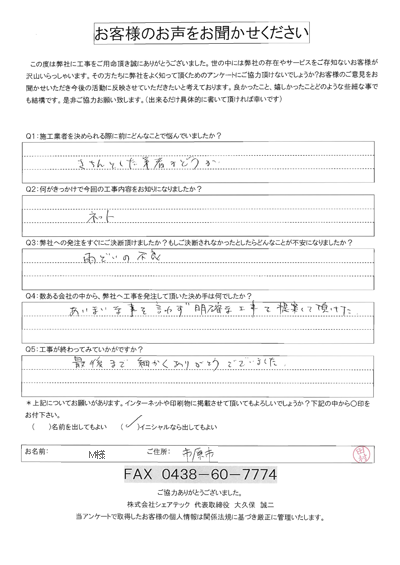 お客様のお声をお聞かせください
この度は弊社に工事をご用命頂き誠にありがとうございました。世の中には弊社の存在やサービスをご存知ないお客様が
沢山いらっしゃいます。その方たちに弊社をよく知って頂くためのアンケートにご協力頂けないでしょうか?お客様のご意見をお
聞かせいただき今後の活動に反映させていただきたいと考えております。良かったこと、嬉しかったことどのような些細な事で
も結構です。是非ご協力お願い致します。(出来るだけ具体的に書いて頂ければ幸いです)
Q1:施工業者を決められる際に前にどんなことで悩んでいましたか?
きちんとした業者かどうか
Q2:何がきっかけで今回の工事内容をお知りになりましたか?
ネット
Q3:弊社への発注をすぐにご決断頂けましたか?もしご決断されなかったとしたらどんなことが不安になりましたか?
雨どいの不良
Q4:数ある会社の中から、弊社へ工事を発注して頂いた決め手は何でしたか?
あいまいな事を言わず明確な工事を提案して頂けた
Q5:工事が終わってみていかがですか?
最後まで細かくありがとうございました
*上記についてお願いがあります。インターネットや印刷物に掲載させて頂いてもよろしいでしょうか?下記の中から〇印を
お付下さい。
( )名前を出してもよい (✓)イニシャルなら出してもよい
お名前: M様 ご住所: 市原市
FAX 0438-60-7774
ご協力ありがとうございました。
株式会社シェアテック 代表取締役 大久保 誠二
当アンケートで取得したお客様の個人情報は関係法規に基づき厳正に管理いたします。